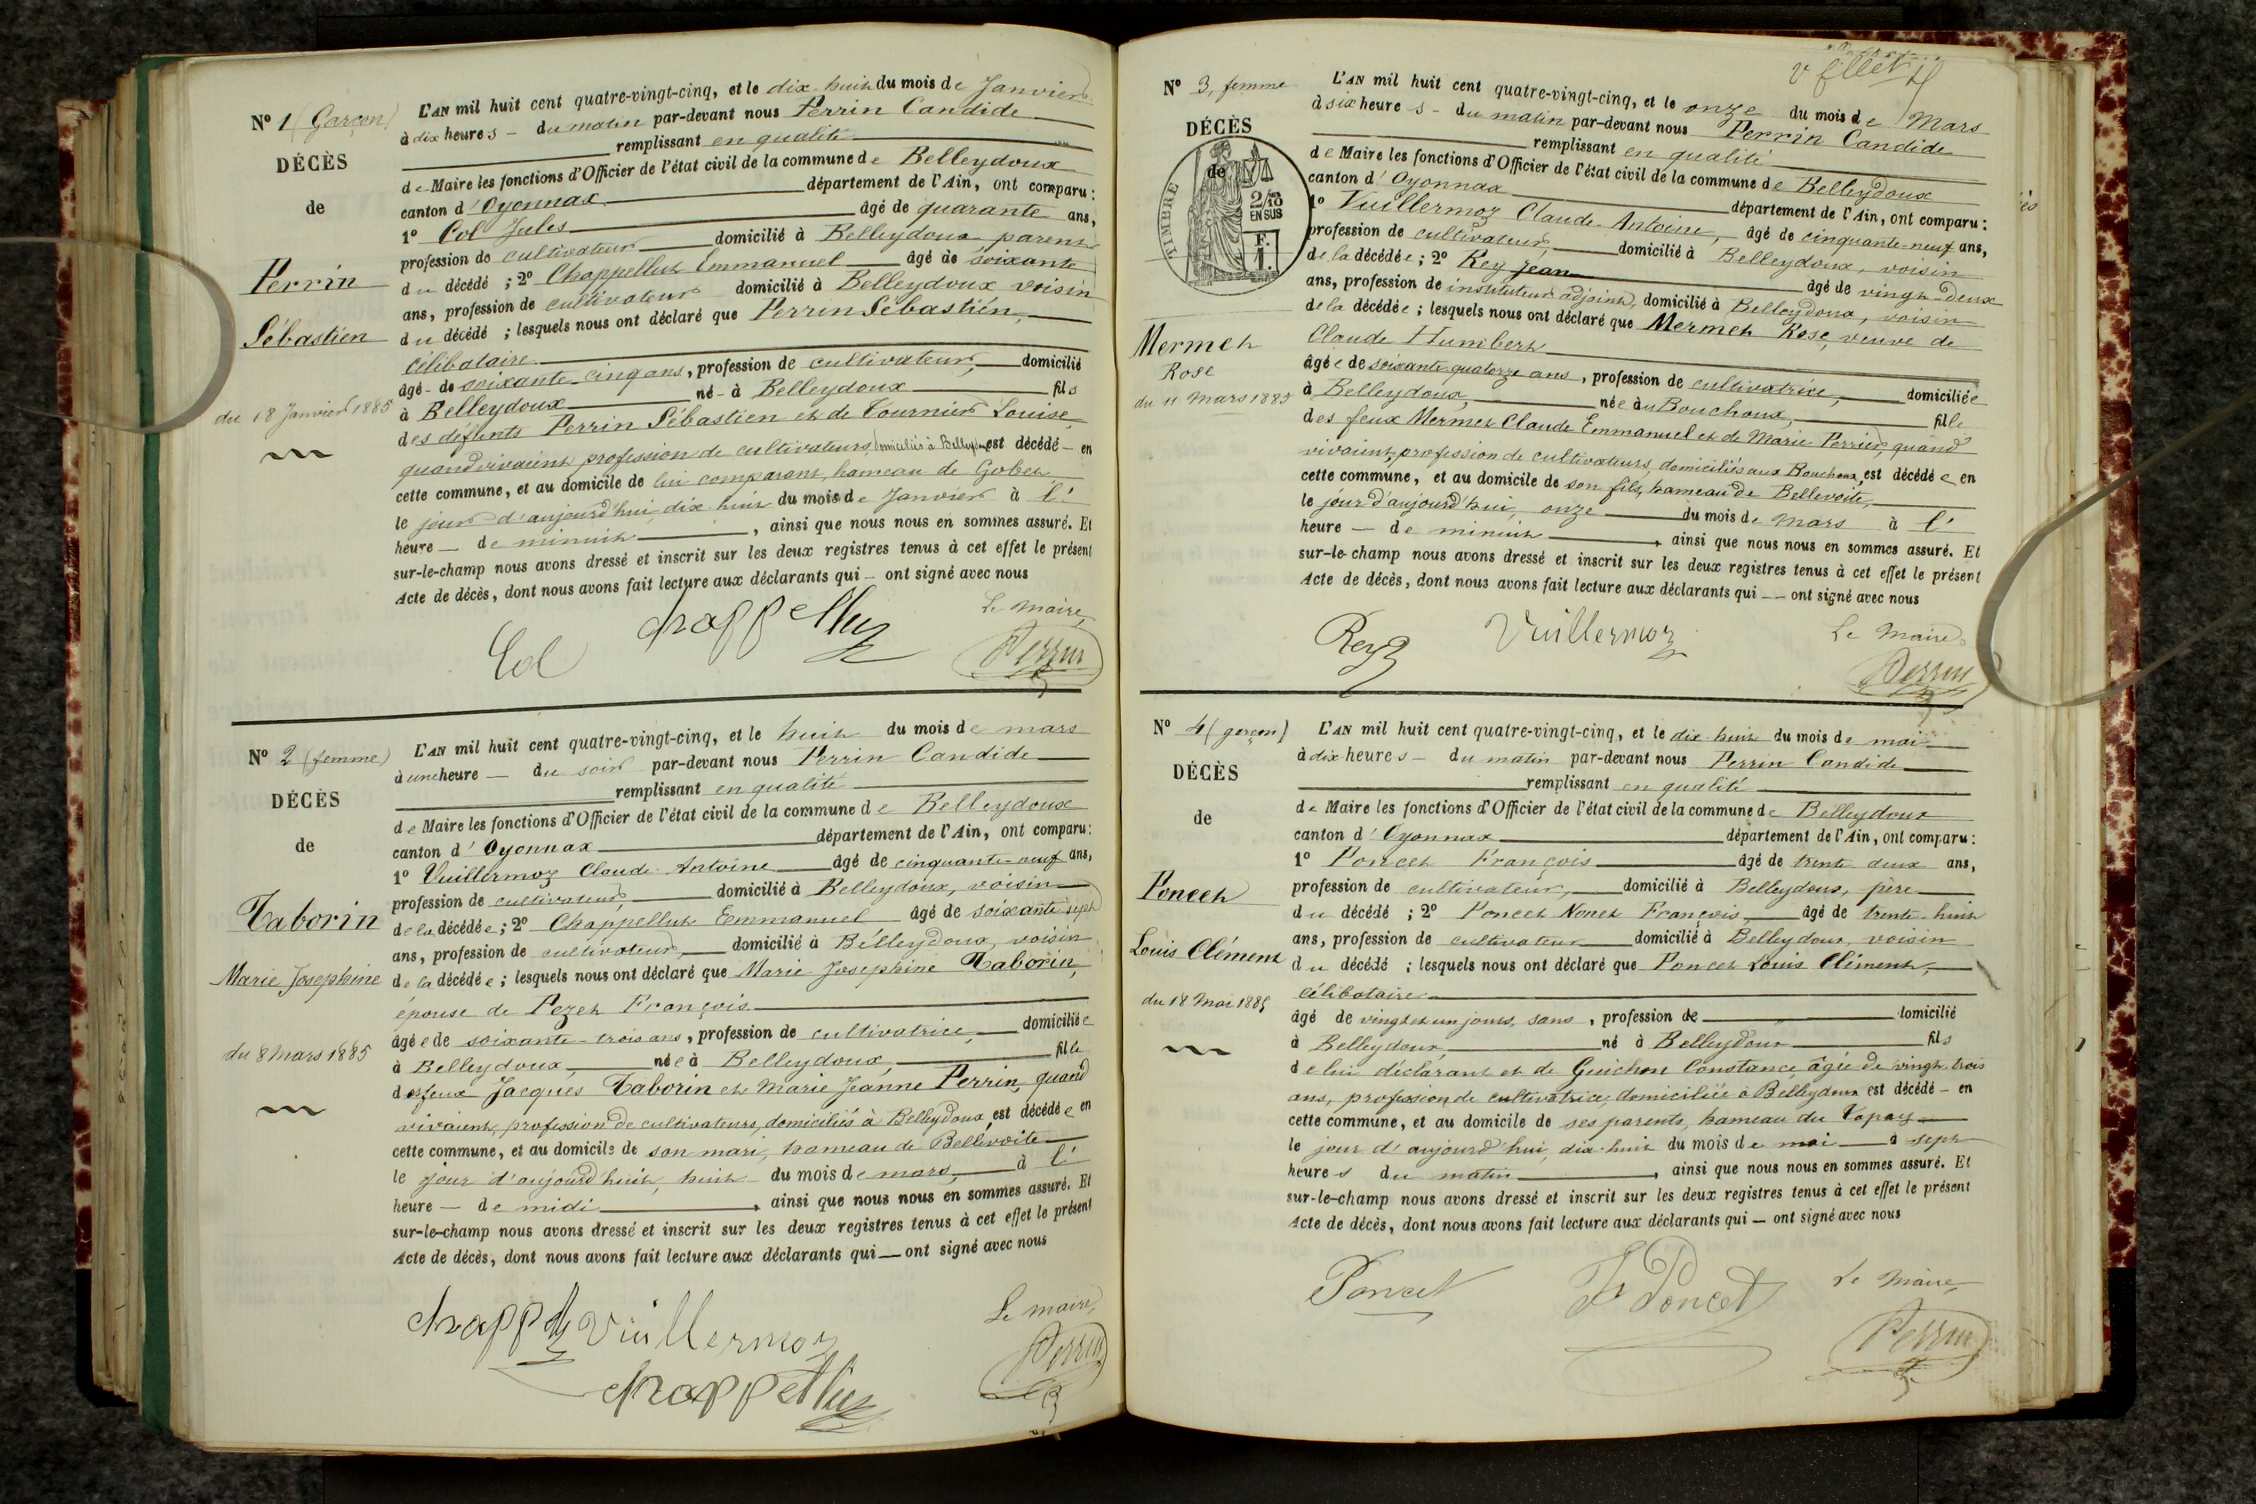 Nº 1 (Garçon)
DÉCÈS
de
Perrin
Sébastien
du 18 Janvier 1885
L'AN mil huit cent quatre-vingt-cinq, et le dix-huit du mois de Janvier
à dix heures - du matin par-devant nous Perrin Candide
remplissant en qualité
de Maire les fonctions d'Officier de l'état civil de la commune de Belleydoux
canton d'Oyonnax département de l'Ain, ont comparu :
1º Col Jules âgé de quarante ans,
profession de cultivateur domicilié à Belleydoux parent
du décédé ; 2º Chappellut Emmanuel âgé de soixante
ans, profession de cultivateur domicilié à Belleydoux voisin
du décédé ; lesquels nous ont déclaré que Perrin Sébastien,
célibataire
âgé - de soixante-cinq ans, profession de cultivateur, domicilié
à Belleydoux né - à Belleydoux fils
des défunts Perrin Sébastien et de Tournier Louise,
quand vivaient profession de cultivateurs, domiciliés à Belleydoux est décédé - en
cette commune, et au domicile de lui comparant, hameau de Gobet
le jour d'aujourd'hui, dix-huit du mois de Janvier à l'
heure - de minuit, ainsi que nous nous en sommes assuré. Et
sur-le-champ nous avons dressé et inscrit sur les deux registres tenus à cet effet le présent
Acte de décès, dont nous avons fait lecture aux déclarants qui - ont signé avec nous
Le Maire,
Col chappellut Perrin
Nº 2 (femme)
DÉCÈS
de
Taborin
Marie Josephine
du 8 Mars 1885
L'AN mil huit cent quatre-vingt-cinq, et le huit du mois de mars
à une heure - du soir par-devant nous Perrin Candide
remplissant en qualité
de Maire les fonctions d'Officier de l'état civil de la commune de Belleydoux
canton d'Oyonnax département de l'Ain, ont comparu :
1º Vuillermoz Claude-Antoine âgé de cinquante-neuf ans,
profession de cultivateur, domicilié à Belleydoux, voisin
de la décédée ; 2º Chappellut Emmanuel âgé de soixante sept
ans, profession de cultivateur, domicilié à Belleydoux, voisin
de la décédée ; lesquels nous ont déclaré que Marie Josephine Taborin,
épouse de Pezet François
âgée de soixante-trois ans, profession de cultivatrice, domiciliée
à Belleydoux, née à Belleydoux, fille
des feux Jacques Taborin et Marie Jeanne Perrin, quand
vivaient, profession de cultivateurs, domiciliés à Belleydoux, est décédée en
cette commune, et au domicile de son mari, hameau de Bellevoite
le jour d'aujourd'huit, huit du mois de mars, à l'
heure - de midi, ainsi que nous nous en sommes assuré. Et
sur-le-champ nous avons dressé et inscrit sur les deux registres tenus à cet effet le présent
Acte de décès, dont nous avons fait lecture aux déclarants qui — ont signé avec nous
Le maire,
Vuillermoz
chappellut Perrin
Nº 3, femme
DÉCÈS
de
TIMBRE
2/10
EN SUS
F.
1.
Mermet
Rose
du 11 Mars 1885
L'AN mil huit cent quatre-vingt-cinq, et le onze du mois de Mars
à six heures - du matin par-devant nous Perrin Candide
remplissant en qualité
de Maire les fonctions d'Officier de l'état civil de la commune de Belleydoux
canton d'Oyonnax département de l'Ain, ont comparu :
1º Vuillermoz Claude-Antoine, âgé de cinquante-neuf ans,
profession de cultivateur, domicilié à Belleydoux, voisin
de la décédée ; 2º Rey Jean âgé de vingt-deux
ans, profession de instituteur adjoint, domicilié à Belleydoux, voisin
de la décédée ; lesquels nous ont déclaré que Mermet Rose, veuve de
Claude Humbert
âgée de soixante-quatorze ans, profession de cultivatrice, domiciliée
à Belleydoux, née au Bouchoux, fille
des feux Mermet Claude Emmanuel et de Marie Perrier, quand
vivaient, profession de cultivateurs, domiciliés aux Bouchoux, est décédée en
cette commune, et au domicile de son fils, hameau de Bellevoite,
le jour d'aujourd'hui, onze du mois de mars à l'
heure — de minuit, ainsi que nous nous en sommes assuré. Et
sur-le-champ nous avons dressé et inscrit sur les deux registres tenus à cet effet le présent
Acte de décès, dont nous avons fait lecture aux déclarants qui — ont signé avec nous
Le Maire
Rey Vuillermoz Perrin
Nº 4 (garçon)
DÉCÈS
de
Poncet
Louis Clément
du 18 Mai 1885
L'AN mil huit cent quatre-vingt-cinq, et le dix-huit du mois de mai
à dix heures - du matin par-devant nous Perrin Candide
remplissant en qualité
de Maire les fonctions d'Officier de l'état civil de la commune de Belleydoux
canton d'Oyonnax département de l'Ain, ont comparu :
1º Poncet François âgé de trente deux ans,
profession de cultivateur, domicilié à Belleydoux, père
du décédé ; 2º Poncet Nonet François, âgé de trente-huit
ans, profession de cultivateur domicilié à Belleydoux, voisin
du décédé ; lesquels nous ont déclaré que Poncet Louis Clément,
célibataire
âgé de vingt et un jours, sans, profession de domicilié
à Belleydoux, né à Belleydoux fils
de lui déclarant et de Guichon Constance, âgée de vingt-trois
ans, profession de cultivatrice, domiciliée à Belleydoux est décédé - en
cette commune, et au domicile de ses parents, hameau du
le jour d'aujourd'hui, dix-huit du mois de mai à sept
heures du matin, ainsi que nous nous en sommes assuré. Et
sur-le-champ nous avons dressé et inscrit sur les deux registres tenus à cet effet le présent
Acte de décès, dont nous avons fait lecture aux déclarants qui — ont signé avec nous
Le Maire,
Poncet Poncet Perrin